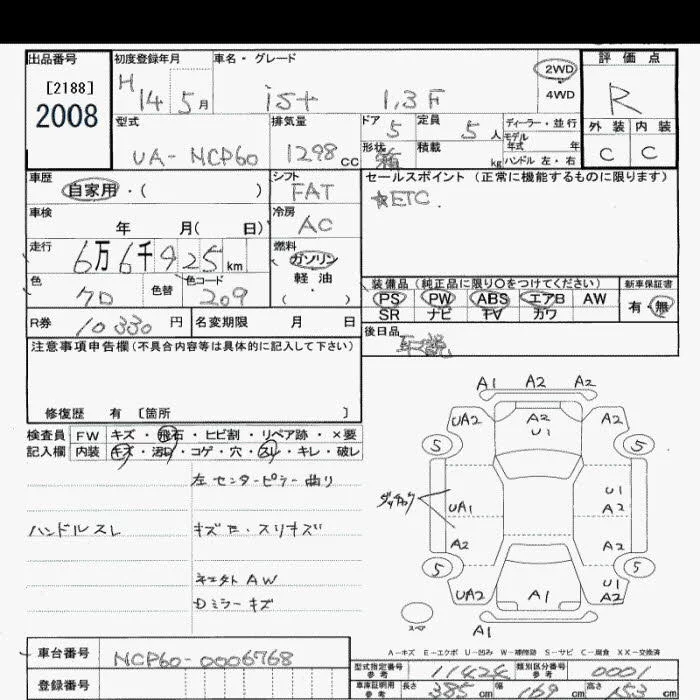 出品番号
[2188]
2008
初度登録年月
H 14 5月
車名・グレード
ist 1.3F
2WD
4WD
評価点
R
外装 内装
C C
型式
UA-NCP60
排気量
1298cc
ドア 5
定員 5人
形状 箱
積載 kg
ディーラー・並行
モデル年式 年
ハンドル 左・右
車歴
自家用・( )
シフト
FAT
セールスポイント (正常に機能するものに限ります)
☆ETC
車検
年 月( 日)
冷房
AC
走行
6万6千925km
燃料
ガソリン
軽油
( )
色
クロ
色替
色コード
209
装備品 (純正品に限り〇をつけてください)
PS PW ABS エアB AW
SR ナビ TV カワ
新車保証書
有・無
R券
10330円
名変期限 月 日
後日品
注意事項申告欄(不具合内容等は具体的に記入して下さい)
修復歴 有 〔箇所 〕
検査員 FW キズ・飛石・ヒビ割・リペア跡・×要
記入欄 内装 キズ・汚れ・コゲ・穴・スレ・キレ・破レ
左センターピラー曲り
ハンドルスレ
キズE・スリキズ
キエタトAW
Dミラーキズ
A1 A2 A2
UA2 A2 U1 A2
5 5
UA1 U1 A2
A2 A2
5 5
UA2 A1 U1 A2
A1
スペア
A-キズ E-エクボ U-凹み W-補修跡 S-サビ C-腐食 XX-交換済
車台番号
NCP60-0006768
登録番号
型式指定番号 参考
11424
類別区分番号 参考
0001
車庫証明用 参考
長さ 385cm
幅 169cm
高さ 153cm